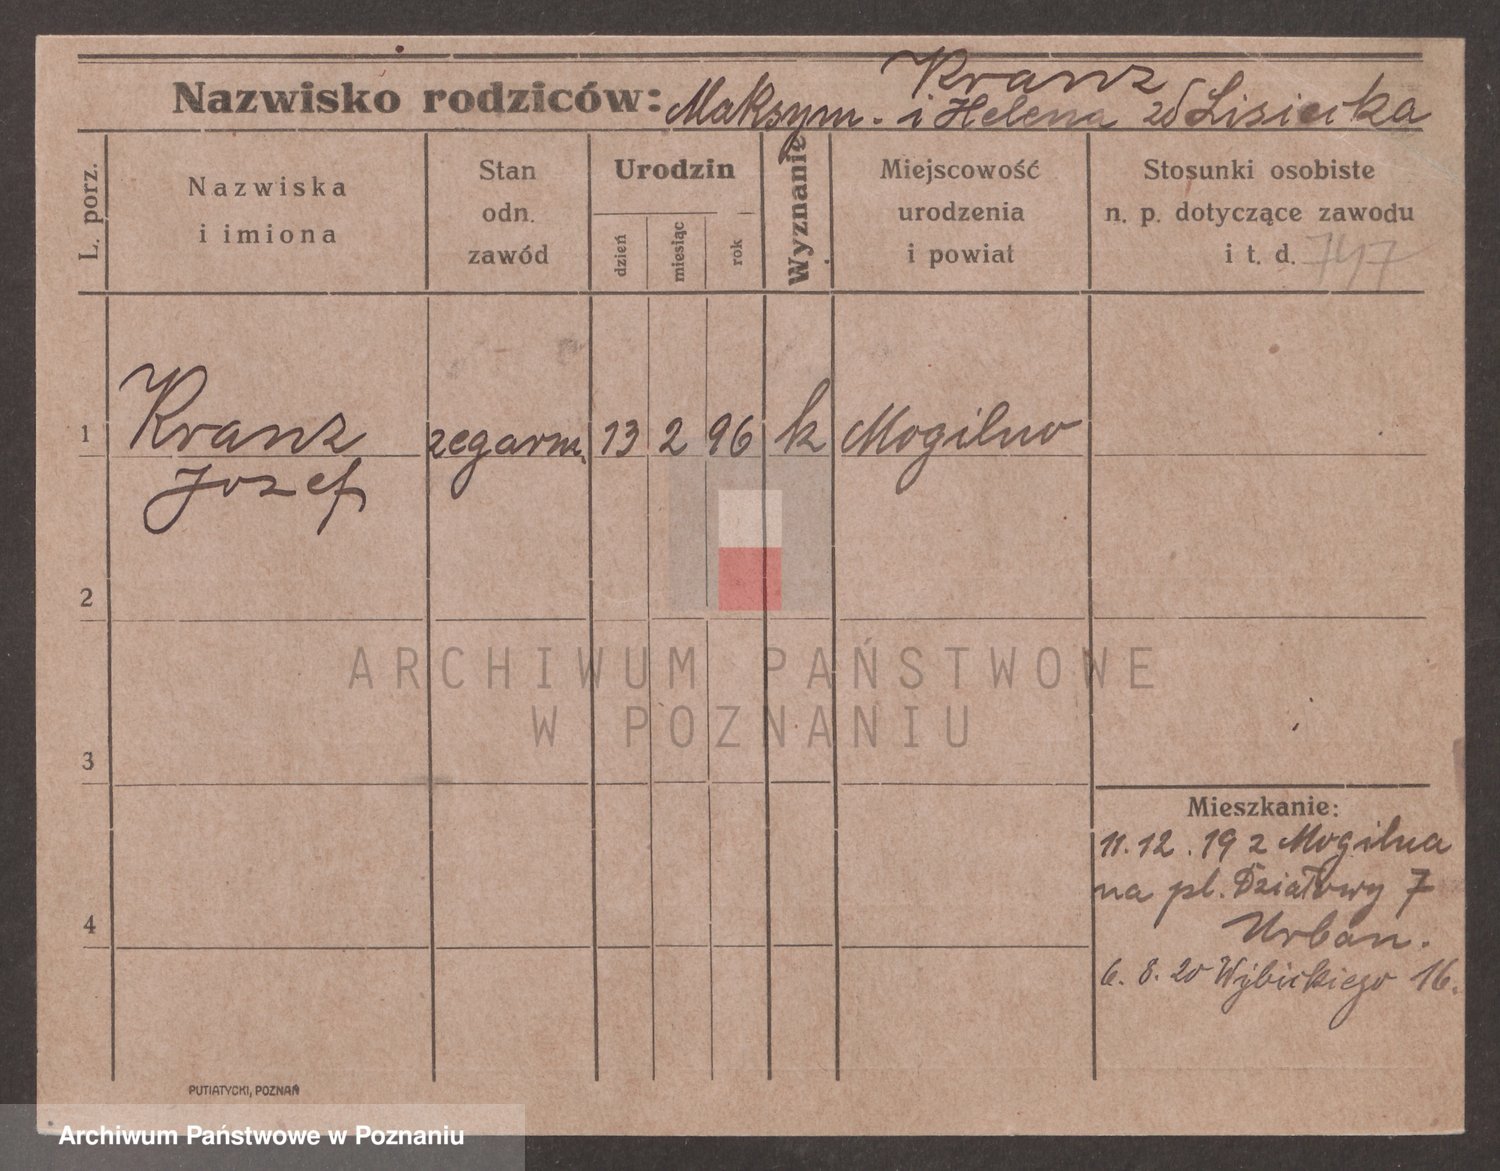 Kranz
Nazwisko rodziców: Maksym. i Helena zd Lisiecka
L. porz.
Nazwiska
i imiona
Stan
odn.
zawód
Urodzin
dzień
miesiąc
rok
Wyznanie
Miejscowość
urodzenia
i powiat
Stosunki osobiste
n. p. dotyczące zawodu
i t. d. 747
1 Kranz zegarm. 13 2 96 k Mogilno
Jozef
2
ARCHIWUM PAŃSTWOWE
W POZNANIU
3
Mieszkanie:
11.12.19 z Mogilna
na pl. Działowy 7
4
Urban.
6.8.20 Wybickiego 16.
PUTIATYCKI, POZNAŃ
Archiwum Państwowe w Poznaniu